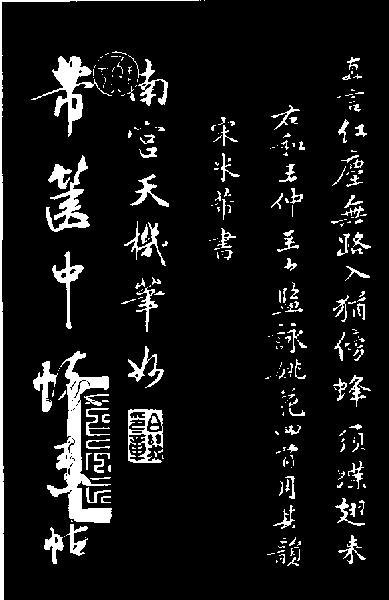 直言紅塵無路入猶傍蜂須蝶翅来
右和王仲至少監詠姚花四首用其韻
宋米芾書
南宮天機筆妙
芾篋中懷素帖